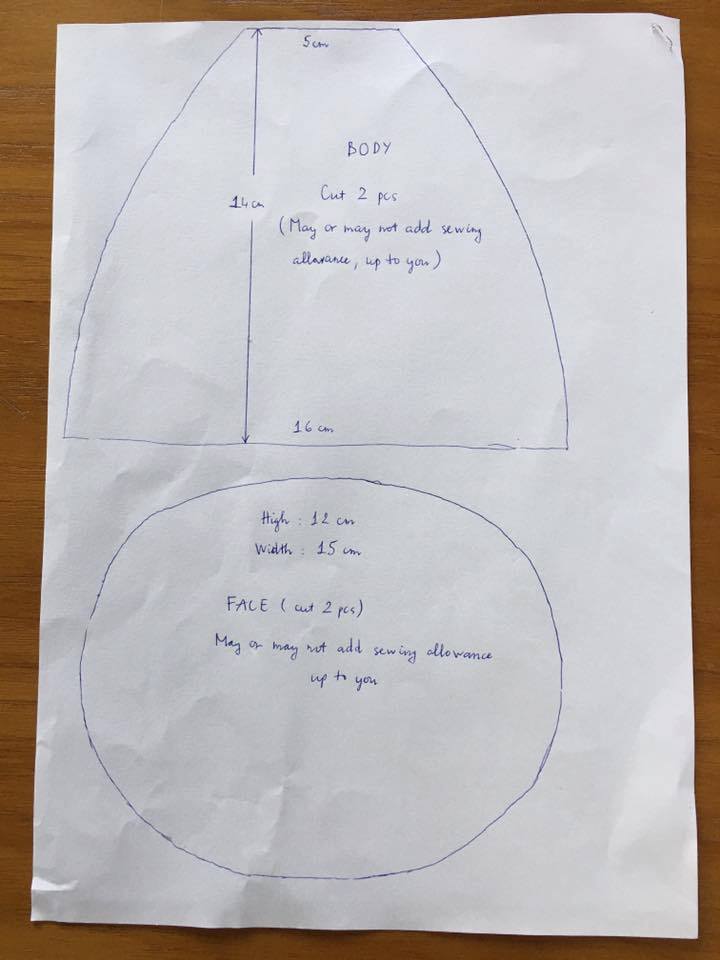 5cm
BODY
14cm
Cut 2 pcs
(May or may not add sewing
allowance, up to you)
16 cm
High : 12 cm
Width : 15 cm
FACE ( cut 2 pcs)
May or may not add sewing allowance
up to you